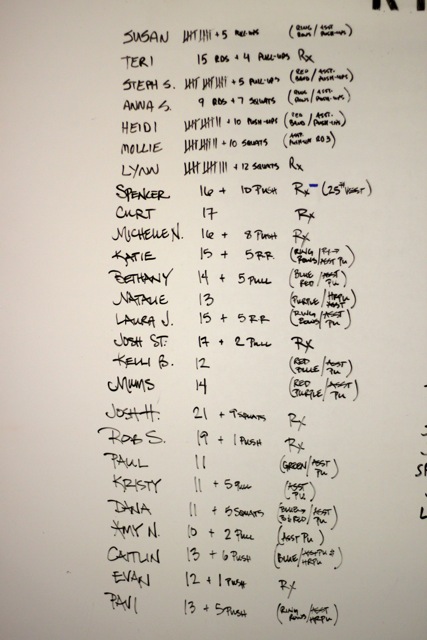 SUSAN + 5 PULL-UPS (RING ROWS / ASST PUSH-UPS)
TERI 15 RDS + 4 PULL-UPS Rx
STEPH S. + 5 PULL-UPS (RED BAND / ASST. PUSH-UPS)
ANNA S. 9 RDS + 7 SQUATS (RING ROWS / ASST. PUSH-UPS)
HEIDI + 10 PUSH-UPS (RED BAND / ASST. PUSH-UPS)
MOLLIE + 10 SQUATS (ASST. PUSH-UP)
LYNN + 12 SQUATS Rx
SPENCER 16 + 10 PUSH Rx (25# VEST)
CURT 17 Rx
MICHELLE N. 16 + 8 PUSH Rx
KATIE 15 + 5 RR (RING ROWS / ASST PU)
BETHANY 14 + 5 PULL (BLUE RED / ASST PU)
NATALIE 13 (PURPLE / HRPU ASST)
LAURA J. 15 + 5 RR (RING ROWS / ASST PU)
JOSH ST. 17 + 2 PULL Rx
KELLI B. 12 (RED BLUE / ASST PU)
MIMS 14 (RED PURPLE / ASST PU)
JOSH H. 21 + 9 SQUATS Rx
ROB S. 19 + 1 PUSH Rx
PAUL 11 (GREEN / ASST PU)
KRISTY 11 + 5 PULL (ASST PU)
DANA 11 + 5 SQUATS (ASST PU)
AMY N. 10 + 2 PULL (ASST PU)
CAITLIN 13 + 6 PUSH (BLUE / ASST PU HRPU)
EVAN 12 + 1 PUSH Rx
PAVI 13 + 5 PUSH (RING ROWS / ASST HRPU)